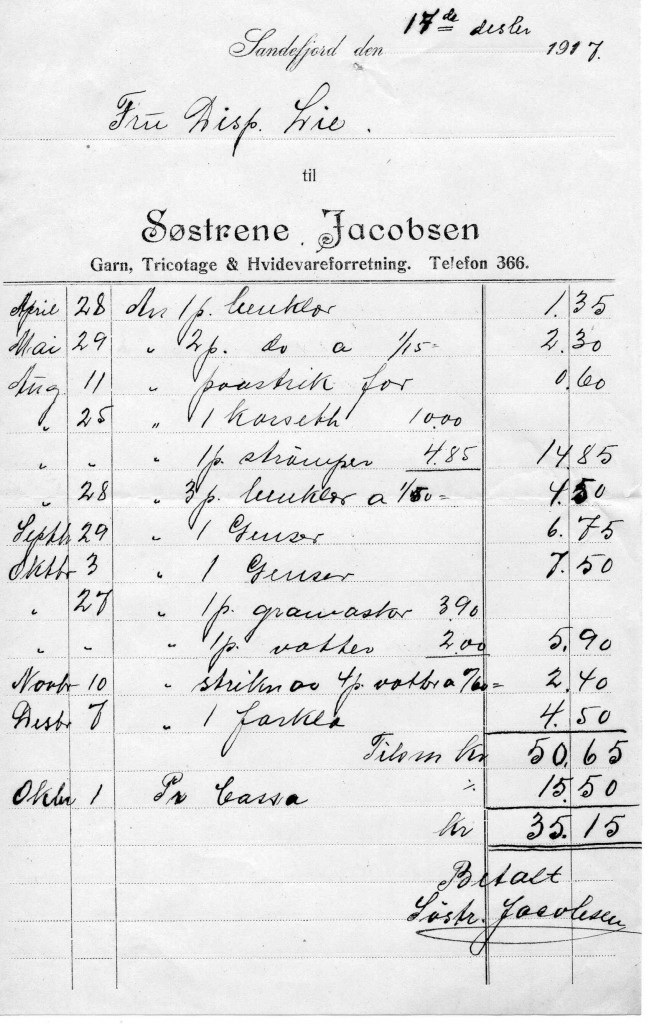 Sandefjord den 17de desbr 1917.
Fru Disp. Lie.
til
Søstrene Jacobsen
Garn, Tricotage & Hvidevareforretning. Telefon 366.
April 28 An 1 p. benklær 1.35
Mai 29 " 2 p. do a 1/15= 2.30
Aug 11 " paastrik for 0.60
" 25 " 1 korseth 10.00
" " 1 p. strømper 4.85 14.85
" 28 " 3 p. benklær a 1/50= 4.50
Septbr 29 " 1 Genser 6.75
Oktbr 3 " 1 Genser 7.50
" 27 " 1 p. gramastor 3.90
" " " 1 p. votter 2.00 5.90
Novbr 10 " strikn av 4 p. votter a /60= 2.40
Desbr 7 " 1 forklæ 4.50
Tilsm Kr 50.65
Oktbr 1 Pr Cassa % 15.50
Kr 35.15
Betalt
Søstr. Jacobsen